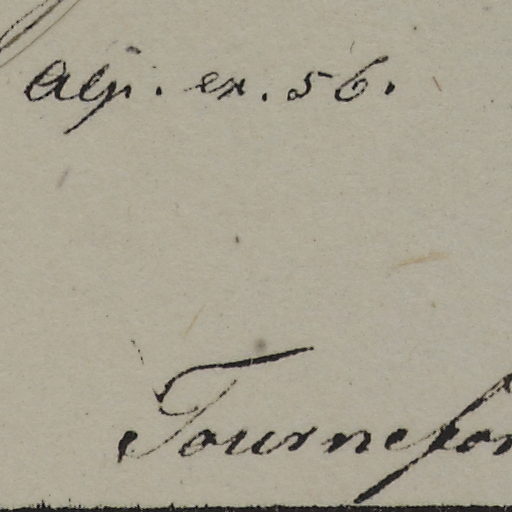 Alp. ex. 56.
Tournefor